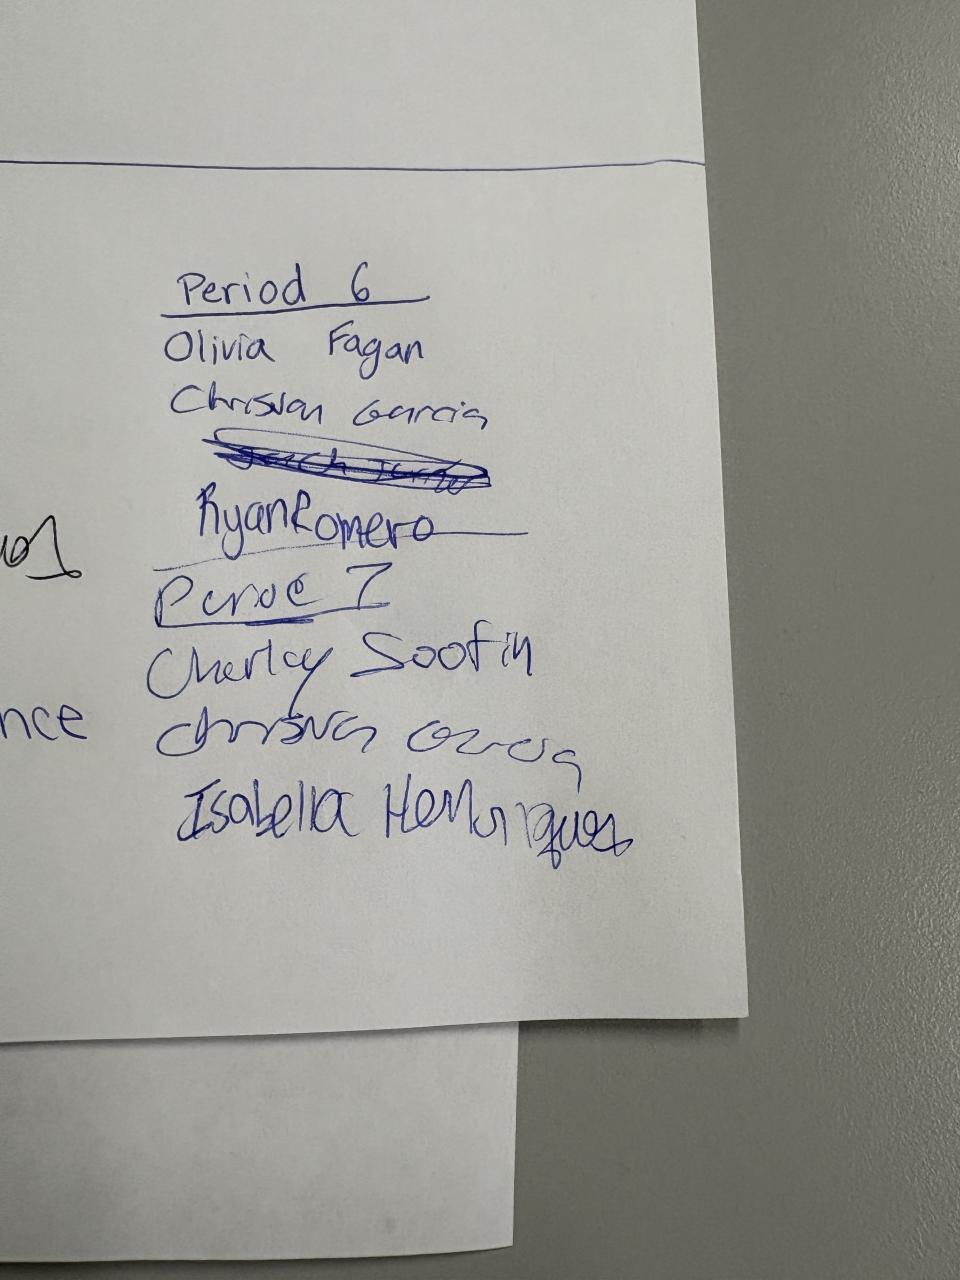 Period 6
Olivia Fagan
Christian Garcia
Ryan Romero
Period 7
Charley Soofin
Christian Garcia
nce
Isabella Henriquez